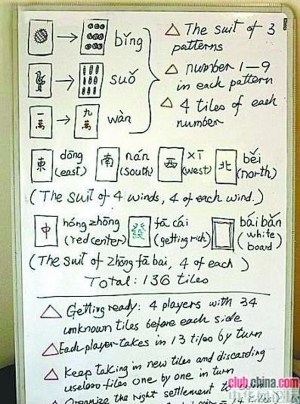 bǐng
△ The suit of 3 patterns
suǒ
△ number 1-9 in each pattern
一萬 → 九萬 wàn
△ 4 tiles of each number
東 dōng (east) 南 nán (south) 西 xī (west) 北 běi (north)
(The suit of 4 winds, 4 of each wind.)
中 hóng zhōng (red center) 發 fā cái (getting rich) bái bǎn (white board)
(The suit of zhōng fā bái, 4 of each)
Total: 136 tiles
△ Getting ready: 4 players with 34 unknown tiles before each side
△ Each player takes in 13 tiles by turn
△ Keep taking in new tiles and discarding useless tiles one by one in turn
△ Organize the right settlement
club.china.com